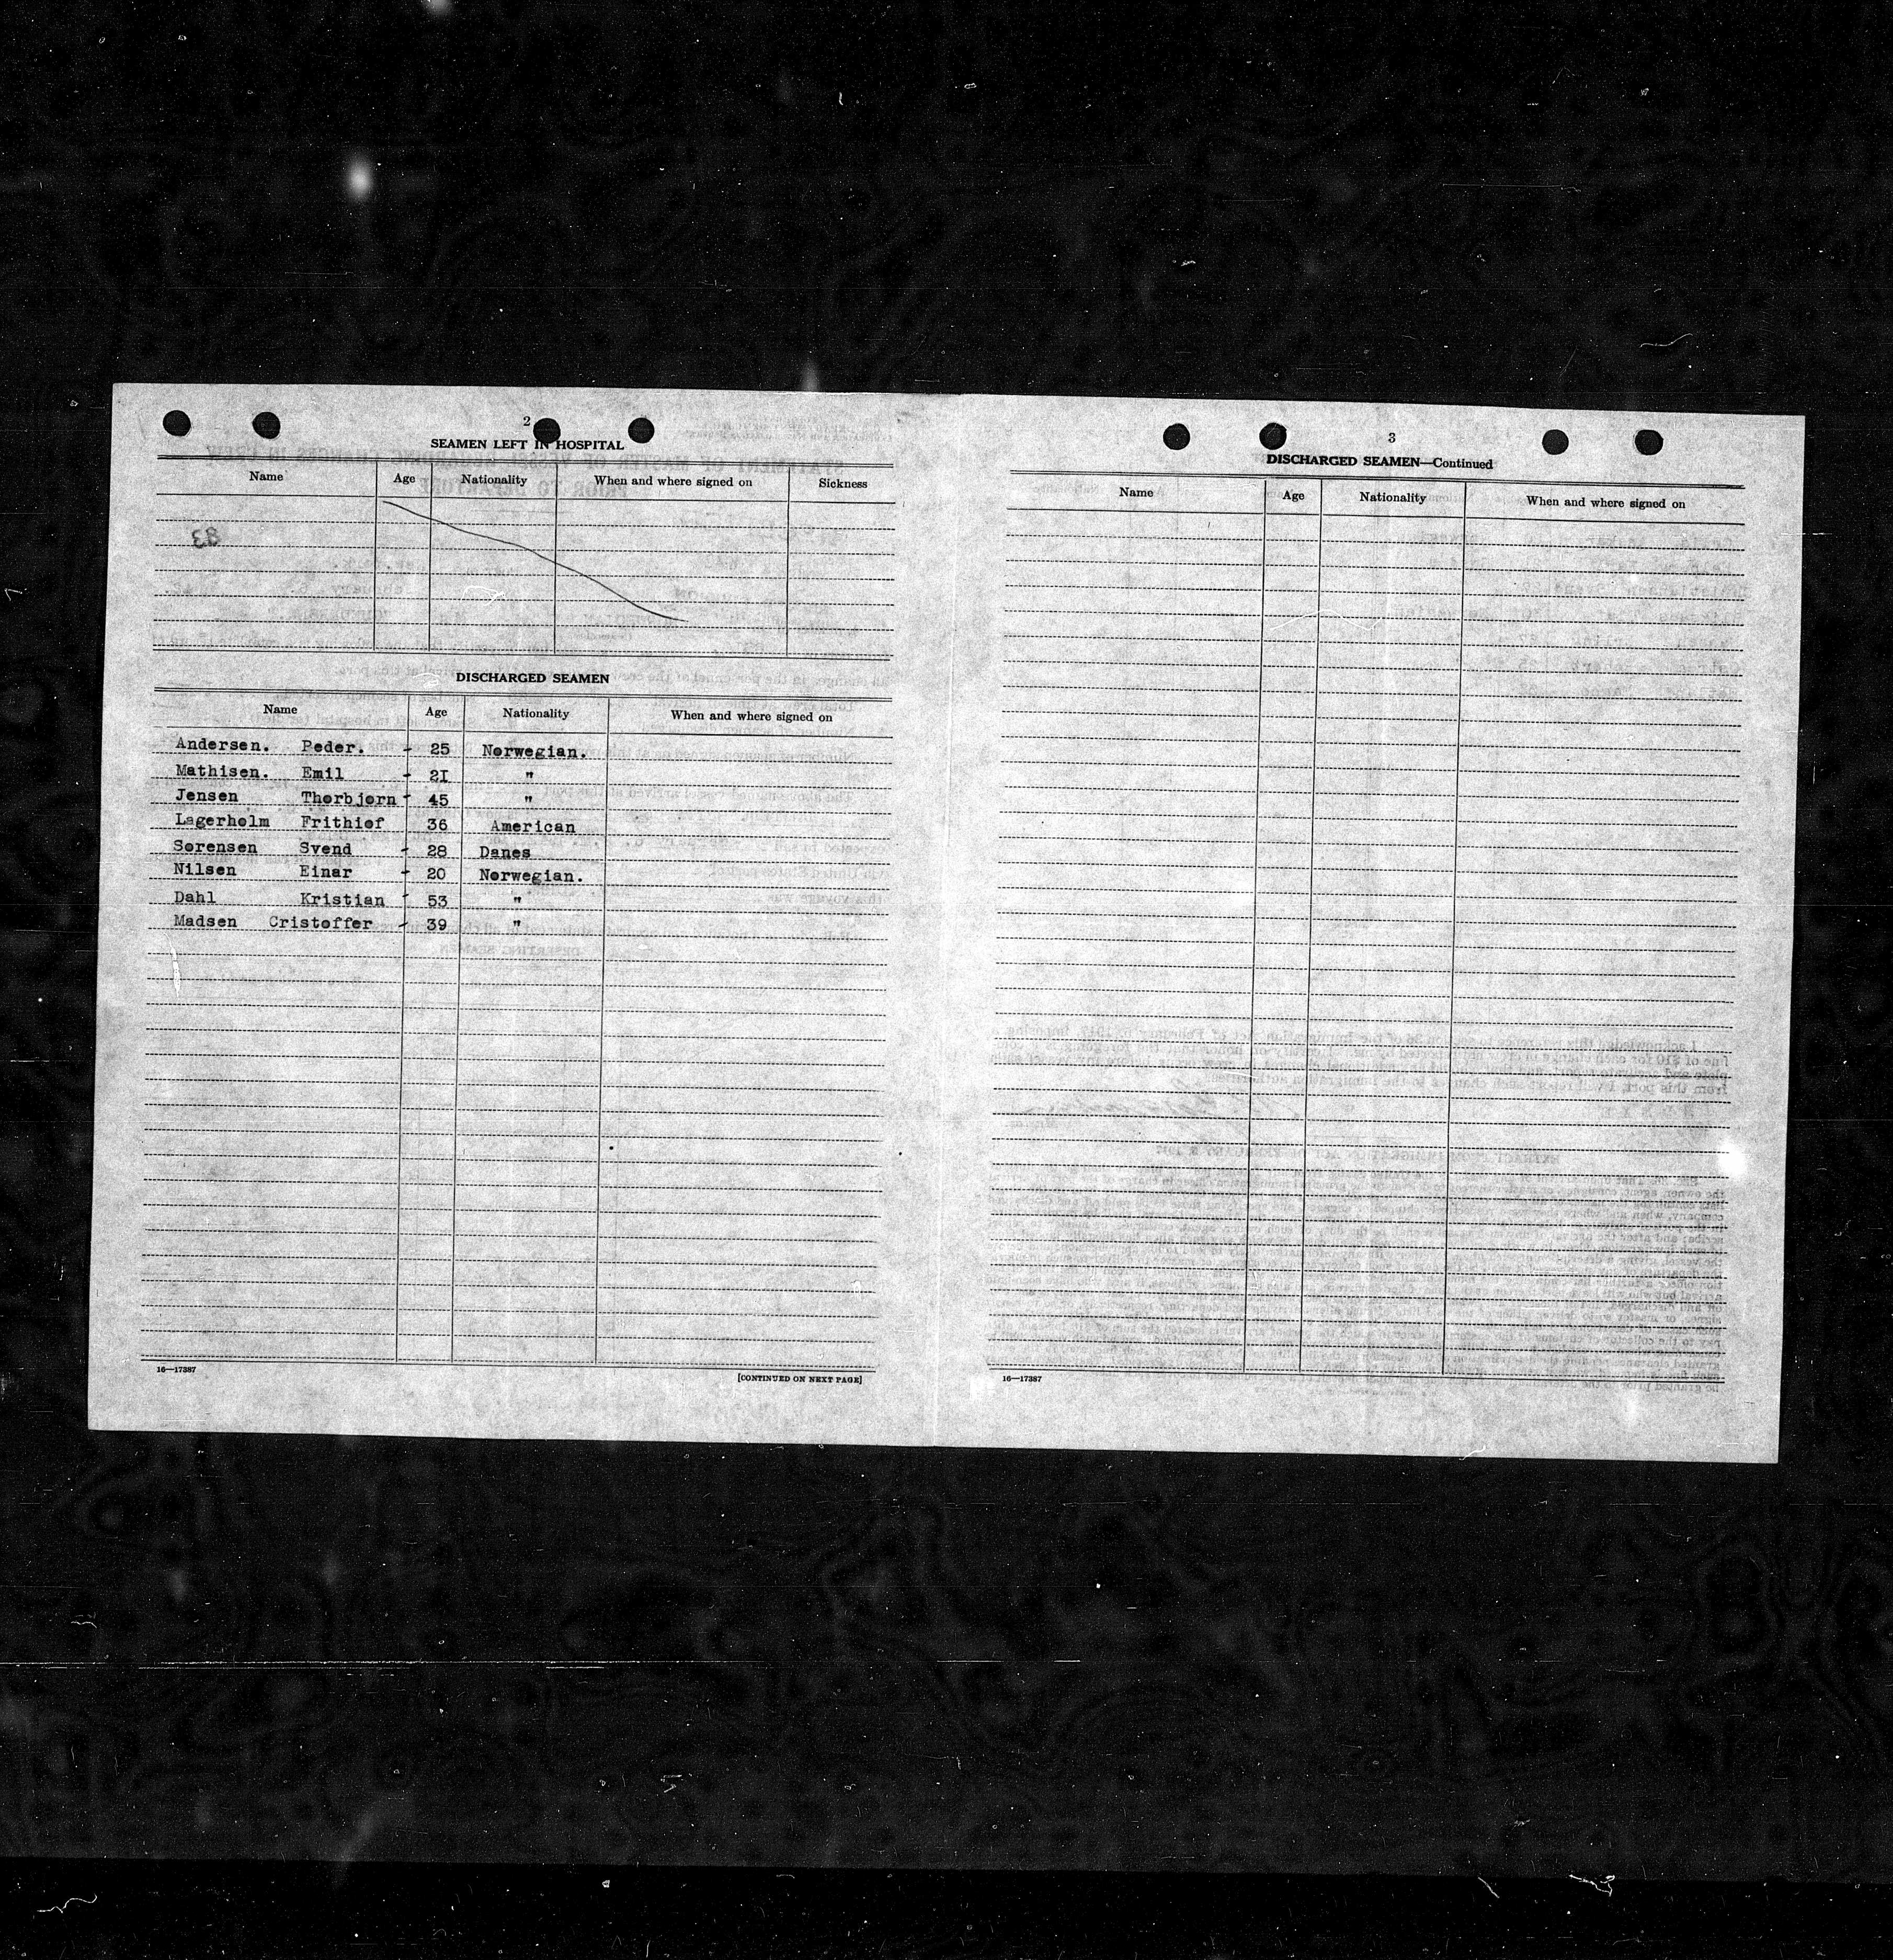 2
SEAMEN LEFT IN HOSPITAL
Name Age Nationality When and where signed on Sickness
DISCHARGED SEAMEN
Name Age Nationality When and where signed on
Andersen. Peder. - 25 Norwegian.
Mathisen. Emil - 2I "
Jensen Thorbjorn - 45 "
Lagerholm Frithiof 36 American
Sorensen Svend - 28 Danes
Nilsen Einar - 20 Norwegian.
Dahl Kristian - 53 "
Madsen Cristoffer - 39 "
16—17387
[CONTINUED ON NEXT PAGE]
3
DISCHARGED SEAMEN—Continued
Name Age Nationality When and where signed on
16—17387